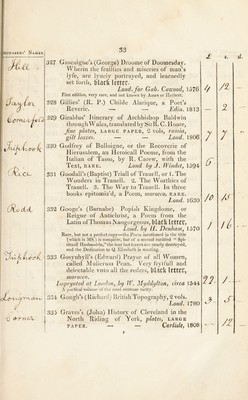 PURCHASERS' NAMES.
53
£ s. d.
Hill
327 Gascoigne's (George) Droome of Doomesday.
Wherein the frailties and miseries of man's
lyfe, are lyuely portrayed, and learnedly
set forth, black letter.
Lond. for Gab. Cawood, 1576
4 12 -
First edition, very rare, and not known by Ames or Herbert.
Taylor
328 Gillies' (R. P.) Childe Alarique, a Poet's
Reverie. — — Edin. 1813
- 2 -
329 Giraldus' Itinerary of Archbishop Baldwin
through Wales, translated by Sir R. C. Hoare,
fine plates, LARGE PAPER, 2 vols. russia,
gilt leaves. — Lond. 1806
7 7 -
Triphook
330 Godfrey of Bulloigne, or the Recoverie of
Hierusalem, an Heroicall Poeme, from the
Italian of Tasso, by R. Carew, with the
Text, RARE. Lond. by J. Windet, 1594
6
Rice
331 Goodall's (Baptist) Triall of Trauell, or 1. The
Wonders in Trauell. 2. The Worthies of
Trauell. 3. The Way to Trauell. In three
books epitomis'd, a Poem, morocco. RARE.
Lond. 1630
10 15
Rodd
332 Googe's (Barnabe) Popish Kingdome, or
Reigne of Antichrist, a Poem from the
Latin of Thomas Naogeorgus, black letter,
Lond. by H. Denham, 1570
1 16 -
Triphook
333 Gosynhyll's (Edward) Prayse of all Women,
called Mulierum Pean. Very fruytfull and
delectable vnto all the reders, black letter,
morocco.
Impryntyd at London, by W. Myddylton, circa 1544
22 1 -
A poetical volume of the most extreme rarity.
Longman
334 Gough's (Richard) British Topography, 2 vols.
Lond. 1780
3 5 -
Corner
335 Graves's (John) History of Cleveland in the
North Riding of York, plates, LARGE
PAPER. — — Carlisle, 1808
- 12